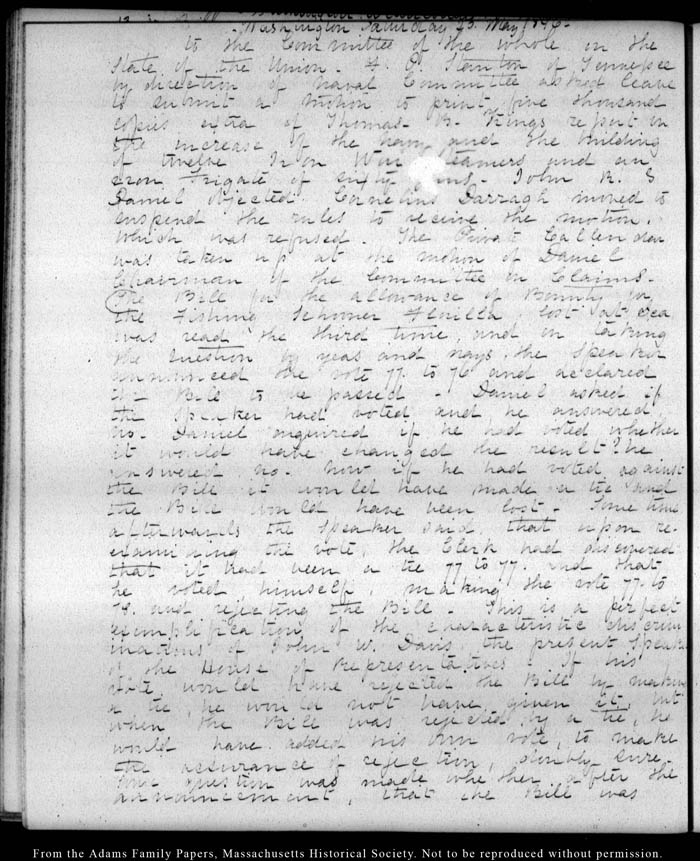 Washington Saturday 23. May 1846-
to the Committee of the whole on the
State of the Union - F. P. Stanton of Tennessee
by direction of Naval Committee asked leave
to submit a motion to print five thousand
copies extra of Thomas B. Kings report on
the increase of the navy and the building
of twelve Iron War Steamers and an
iron Frigate of sixty guns - John R. J
Daniel objected. Cornelius Darragh moved to
suspend the rules to receive the motion,
which was refused. The Private Callendar
was taken up at the motion of Daniel
Chairman of the Committee on Claims -
The Bill for the allowance of Bounty for
the Fishing Schooner Florilla, lost at Sea
was read the third time, and on taking
the question by yeas and nays, the Speaker
announced the vote 77 to 76 and declared
the Bill to be passed - Daniel asked if
the Speaker had voted and he answered,
no. Daniel enquired if he had voted whether
it would have changed the result? he
answered no. now if he had voted against
the Bill it would have made a tie and
the Bill would have been lost - Some time
afterwards the Speaker said, that upon re-
examining the vote, the Clerk had discovered
that it had been a tie 77 to 77. and that
he voted himself, making the vote 77. to
78. and rejecting the Bill - This is a perfect
exemplification of the characteristic discrim
inations of John W. Davis the present Speaker
of the House of Representatives - If his
vote would have rejected the Bill by making
a tie, he would not have given it, but
when the Bill was rejected by a tie, he
would have added his own vote, to make
the assurance of rejection, doubly sure.
question was made whether after the
announcement, that the Bill was
From the Adams Family Papers, Massachusetts Historical Society. Not to be reproduced without permission.